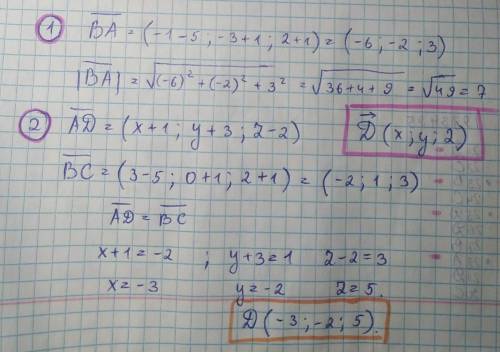 ① BA = (-1-5 ; -3+1 ; 2+1) = (-6 ; -2 ; 3)
|BA| = √((-6)² + (-2)² + 3²) = √(36+4+9) = √49 = 7
② AD = (x+1 ; y+3 ; z-2) D (x ; y ; z)
BC = (3-5 ; 0+1 ; 2+1) = (-2 ; 1 ; 3)
AD = BC
x+1 = -2 ; y+3 = 1 z-2 = 3
x = -3 y = -2 z = 5.
D (-3 ; -2 ; 5).